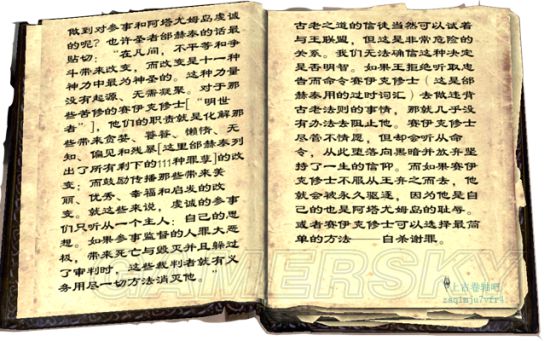 做到对参事和阿塔尤姆岛虔诚
的呢?也许圣者邰赫泰的话最
贴切:“在凡间,不平等和争
斗带来改变,而改变是十一种
神力中最为神圣的。这种力量
没有起源、无需凝聚。对于那
些苦修的赛伊克修士[“明世
者”],他们的职责就是化解那
些带来贪婪、暴眚、懒惰、无
知、偏见和残暴[这里邰赫泰列
出了所有剩下的111种罪孽]的改
变;而鼓励传播那些带来美
丽、优秀、幸福和启发的改
变。就这些来说,虔诚的参事
们只听从一个主人:自己的思
想。如果参事监督的人罪大恶
极,带来死亡与毁灭并且躲过
了审判时,这些裁判者就有义
务用尽一切方法消灭他。”
古老之道的信徒当然可以试着
与王联盟,但这是非常危险的
关系。我们无法确信这种决定
是否明智。如果王拒绝听取忠
告而命令赛伊克修士(这是邰
赫泰用的过时词汇)去做违背
古老法则的事情,那就几乎没
有办法去阻止他。赛伊克修士
尽管不情愿,但却会听从命
令,从此堕落向黑暗并放弃坚
持了一生的信仰。而如果赛伊
克修士不服从王弃之而去,他
就会被永久驱逐,因为他是自
己的也是阿塔尤姆岛的耻辱。
或者赛伊克修士可以选择最简
单的方法——自杀谢罪。
GAMERSKY
上古卷轴吧